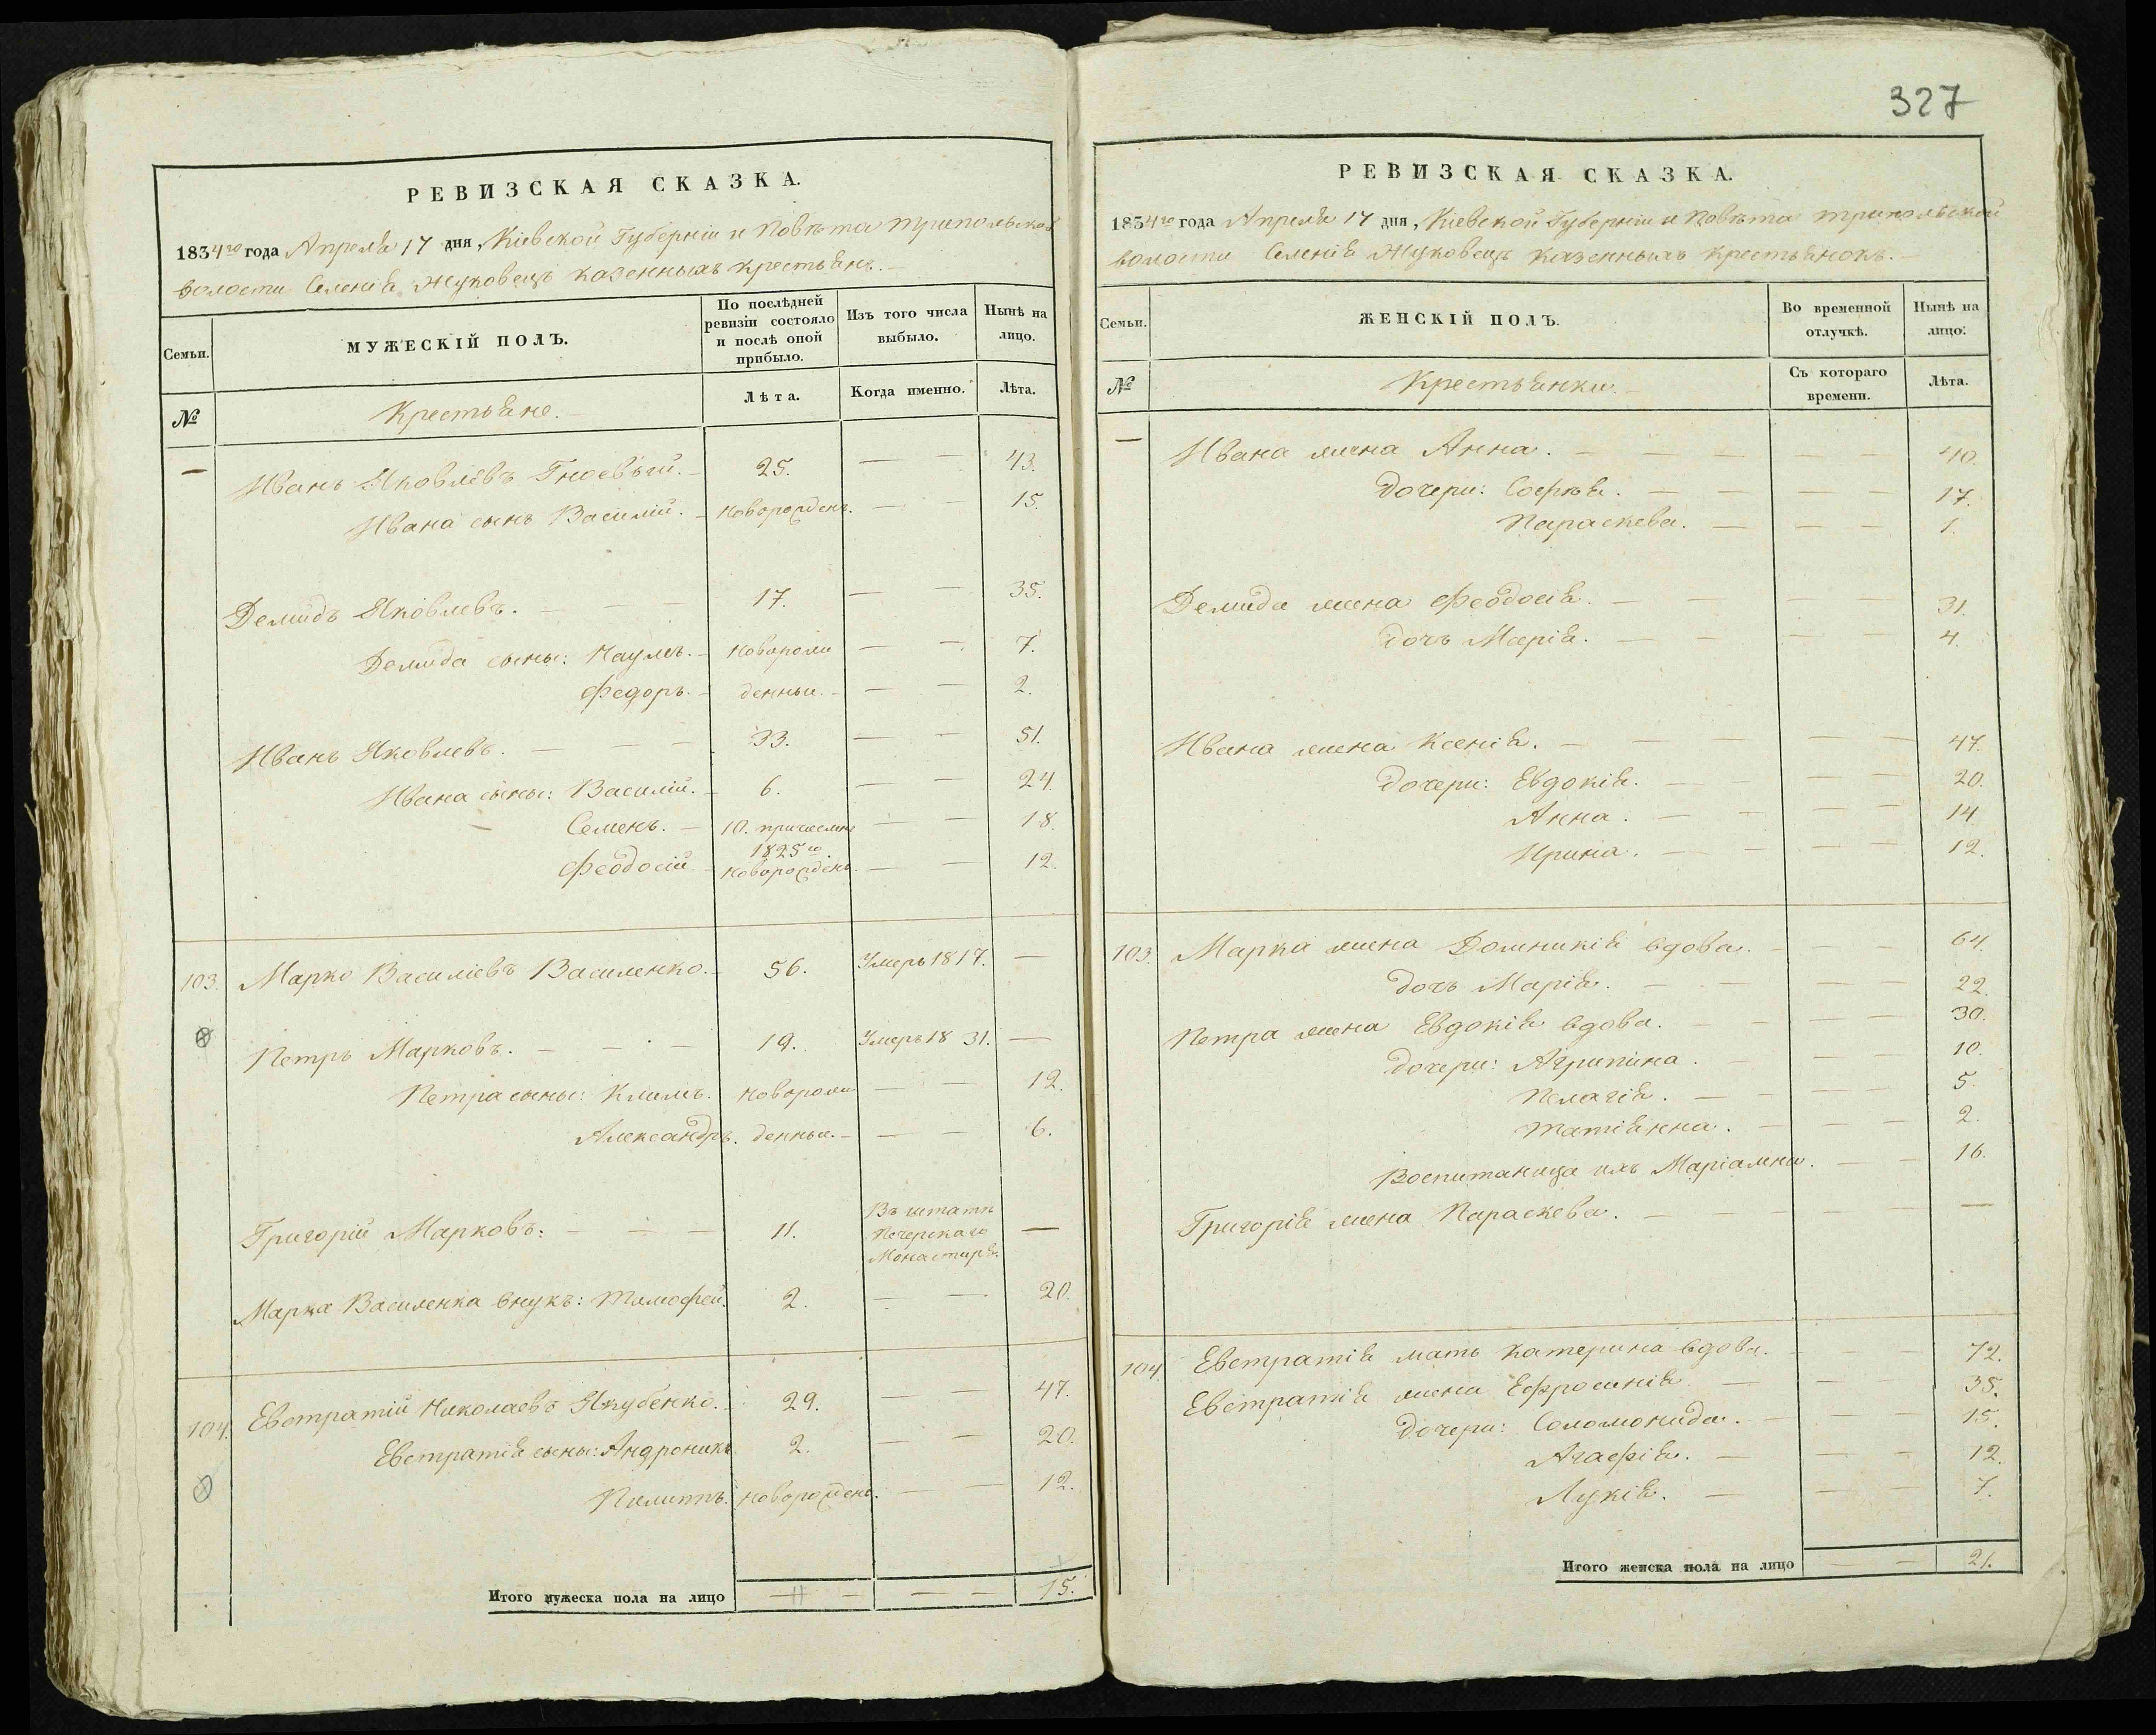 327
РЕВИЗСКАЯ СКАЗКА.
1834го года Апреля 17 дня, Кіевской Губерніи и Повѣта трипольской
волости Селенія Жуковецъ казенныхъ крестьянъ.
Семьи. МУЖЕСКІЙ ПОЛЪ. По послѣдней ревизіи состояло и послѣ оной прибыло. Изъ того числа выбыло. Нынѣ на лицо.
№ Крестьяне. Лѣта. Когда именно. Лѣта.
— Иванъ Яковлевъ Гноевый. 25. — — 43.
Ивана сынъ Василій. новорожденъ. — — 15.
Демидъ Яковлевъ. — — — 17. — — 35.
Демида сыны: Наумъ. новорож — — 7.
Федоръ. денныи — — 2.
Иванъ Яковлевъ. — — — 33. — — 51.
Ивана сыны: Василій. 6. — — 24.
Семенъ. 10. причисленъ 1825го — — 18.
Феодосій. новорожденъ. — — 12.
103. Марко Василіевъ Василенко. 56. Умеръ 1817. —
Петръ Марковъ. — — — 19. Умеръ 1831. —
Петра сыны: Климъ. новорож — — 12.
Александръ. денныи. — — 6.
Григорій Марковъ. — — — 11. Въ штатѣ Печерскаго Монастиря. —
Марка Василенка внукъ: Тимофей. 2. — — 20.
104. Евстратій Николаевъ Якубенко. 29. — — 47.
Евстратія сыны: Андроникъ 2. — — 20.
Пилиппъ. новорожденъ. — — 12.
Итого мужеска пола на лицо — 11 — — — 15.
РЕВИЗСКАЯ СКАЗКА.
1834го года Апреля 17 дня, Кіевской Губерніи и Повѣта трипольской
волости Селенія Жуковецъ казенныхъ крестьянокъ.
Семьи. ЖЕНСКІЙ ПОЛЪ. Во временной отлучкѣ. Нынѣ на лицо.
№ Крестьянки. Съ котораго времени. Лѣта.
— Ивана жена Анна. — — 40.
Дочери: Софія. — — 17.
Параскева. — — 1.
Демида жена Феодосія. — — 31.
дочь Марія. — — 4.
Ивана жена Ксенія. — — 47.
дочери: Евдокія. — — 20.
Анна. — — 14.
Ирина. — — 12.
103. Марка жена Домникія вдова. — — 64.
дочь Марія. — — 22.
Петра жена Евдокія вдова. — — 30.
дочери: Агрипина. — — 10.
Пелагія. — — 5.
Татіянна. — — 2.
Воспитаница ихъ Маріамна. — — 16.
Григорія жена Параскева. — — —
104. Евстратія мать Катерина вдова. — — 72.
Евстратія жена Ефросинія — — 35.
Дочери: Соломонида. — — 15.
Агафія. — — 12.
Лукія. — — 7.
Итого женска пола на лицо — — 21.